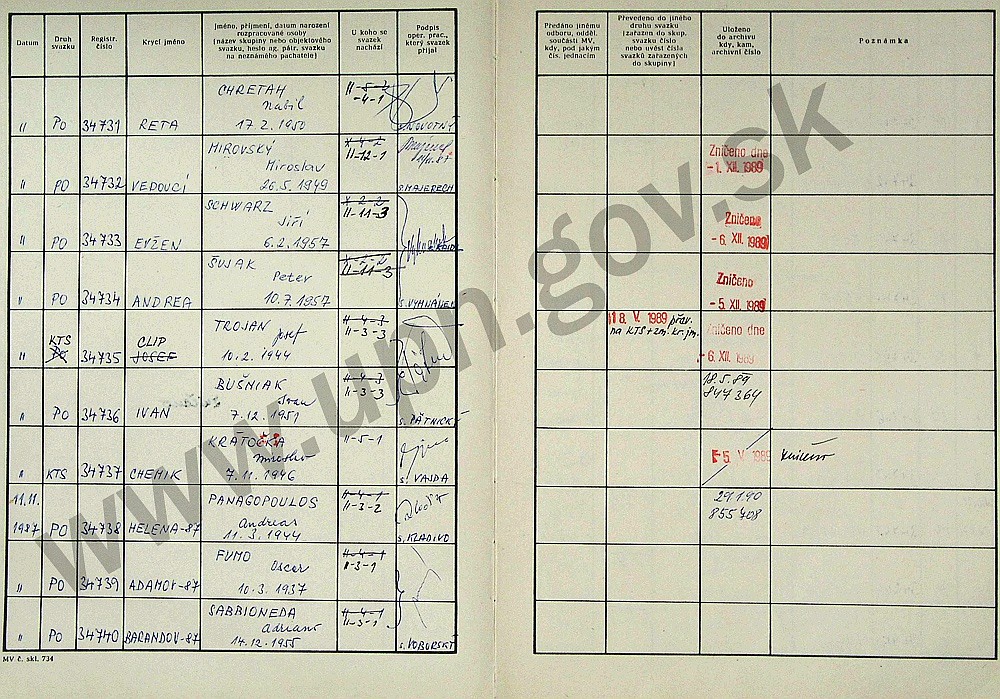 Datum
Druh
svazku
Registr.
číslo
Krycí jméno
Jméno, příjmení, datum narození
rozpracované osoby
(název skupiny nebo objektového
svazku, heslo ag. pátr. svazku
na neznámého pachatele)
U koho se
svazek
nachází
Podpis
oper. prac.,
který svazek
přijal
Předáno jinému
odboru, odděl.
součásti MV,
kdy, pod jakým
čís. jednacím
Převedeno do jiného
druhu svazku
(zařazen do skup.
svazku číslo
nebo uvést čísla
svazků zařazených
do skupiny)
Uloženo
do archivu
kdy, kam,
archivní číslo
Poznámka
CHRETAH
Nabil
II-5-3
-4-1
" PO 34731 RETA 17.2.1950 s. NOVOTNÝ
MIROVSKÝ
Miroslav
II-12-1
" PO 34732 VEDOUCÍ 26.5.1949 s. MAJERECH
Zničeno dne
-1. XII. 1989
SCHWARZ
Jiří
II-11-3
" PO 34733 EVŽEN 6.2.1957
Zničeno
-6. XII. 1989
ŠUJAK
Peter
II-11-3
" PO 34734 ANDREA 10.7.1957 s. VYHNÁNEK
Zničeno
-5. XII. 1989
TROJAN
Josef
II-4-3
II-3-3
KTS CLIP
" PO 34735 JOSEF 10.2.1944
18. V. 1989 přev.
na KTS + zm. kr. jm.
Zničeno dne
-6. XII. 1989
BUŠNIAK
Ivan
II-4-3
II-3-3
" PO 34736 IVAN 7.12.1951 s. PÁTNICKÝ
18.5.89
847364
KRATOČKA
Miroslav
II-5-1
" KTS 34737 CHEMIK 7.11.1946 s. VAJDA
-5. V. 1989 zničeno
11.11.
1987 PO 34738 HELENA-87
PANAGOPOULOS
Andreas
11.3.1944
II-4-1
II-3-2
s. KLADIVO
29.1.90
855708
FUMO
Oscar
II-4-1
II-3-1
" PO 34739 ADAMOV-87 10.3.1937
SABBIONEDA
Adriano
II-4-1
II-3-1
" PO 34740 BARANDOV-87 14.12.1955 s. VOBORSKÝ
MV č. skl. 734
www.upn.gov.sk